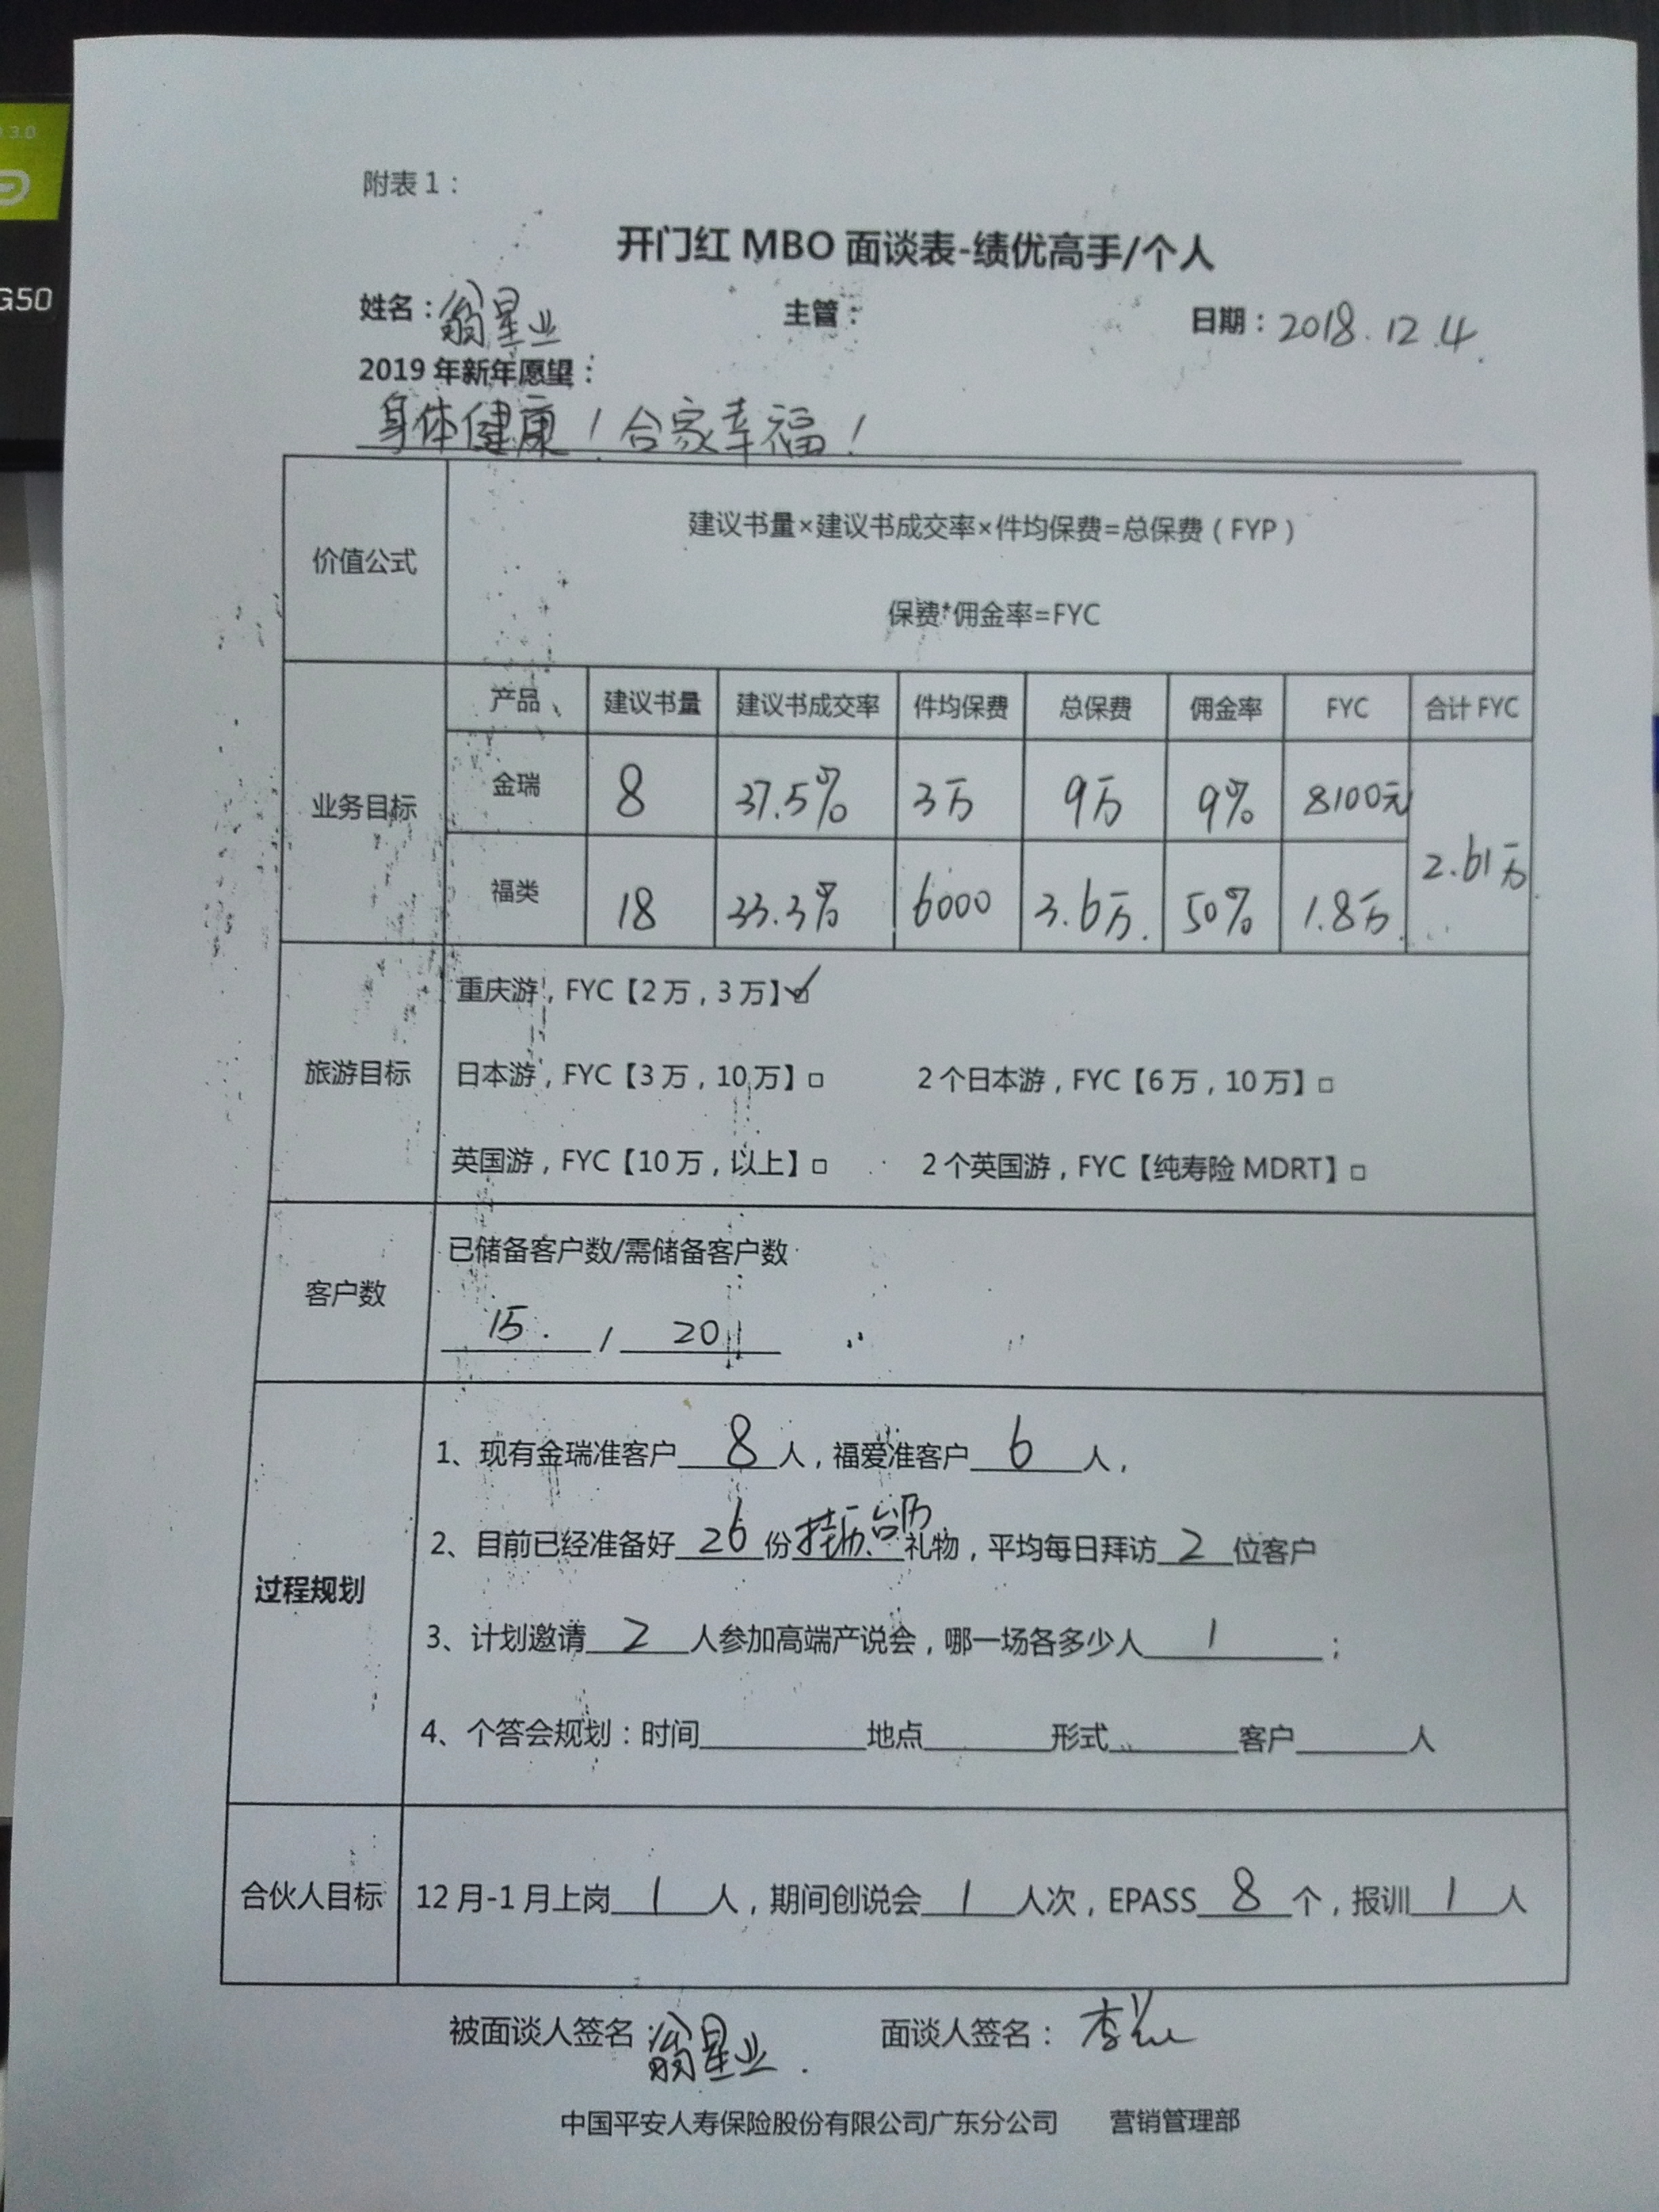 3.0
G50
附表1：
开门红 MBO 面谈表-绩优高手/个人
姓名：翁星业 主管： 日期：2018.12.4.
2019年新年愿望：
身体健康！合家幸福！
价值公式
建议书量×建议书成交率×件均保费=总保费（FYP）
保费*佣金率=FYC
业务目标
产品、 建议书量 建议书成交率 件均保费 总保费 佣金率 FYC 合计FYC
金瑞 8 37.5% 3万 9万 9% 8100元 2.61万
福类 18 33.3% 6000 3.6万. 50% 1.8万.
旅游目标
重庆游，FYC【2万，3万】☑
日本游，FYC【3万，10万】□ 2个日本游，FYC【6万，10万】□
英国游，FYC【10万，以上】□ 2个英国游，FYC【纯寿险MDRT】□
客户数
已储备客户数/需储备客户数
15. / 20
过程规划
1、现有金瑞准客户 8 人，福爱准客户 6 人，
2、目前已经准备好 26 份挂历、台历礼物，平均每日拜访 2 位客户
3、计划邀请 2 人参加高端产说会，哪一场各多少人 1 ；
4、个答会规划：时间______地点______形式______客户______人
合伙人目标
12月-1月上岗 1 人，期间创说会 1 人次，EPASS 8 个，报训 1 人
被面谈人签名：翁星业. 面谈人签名：李
中国平安人寿保险股份有限公司广东分公司 营销管理部